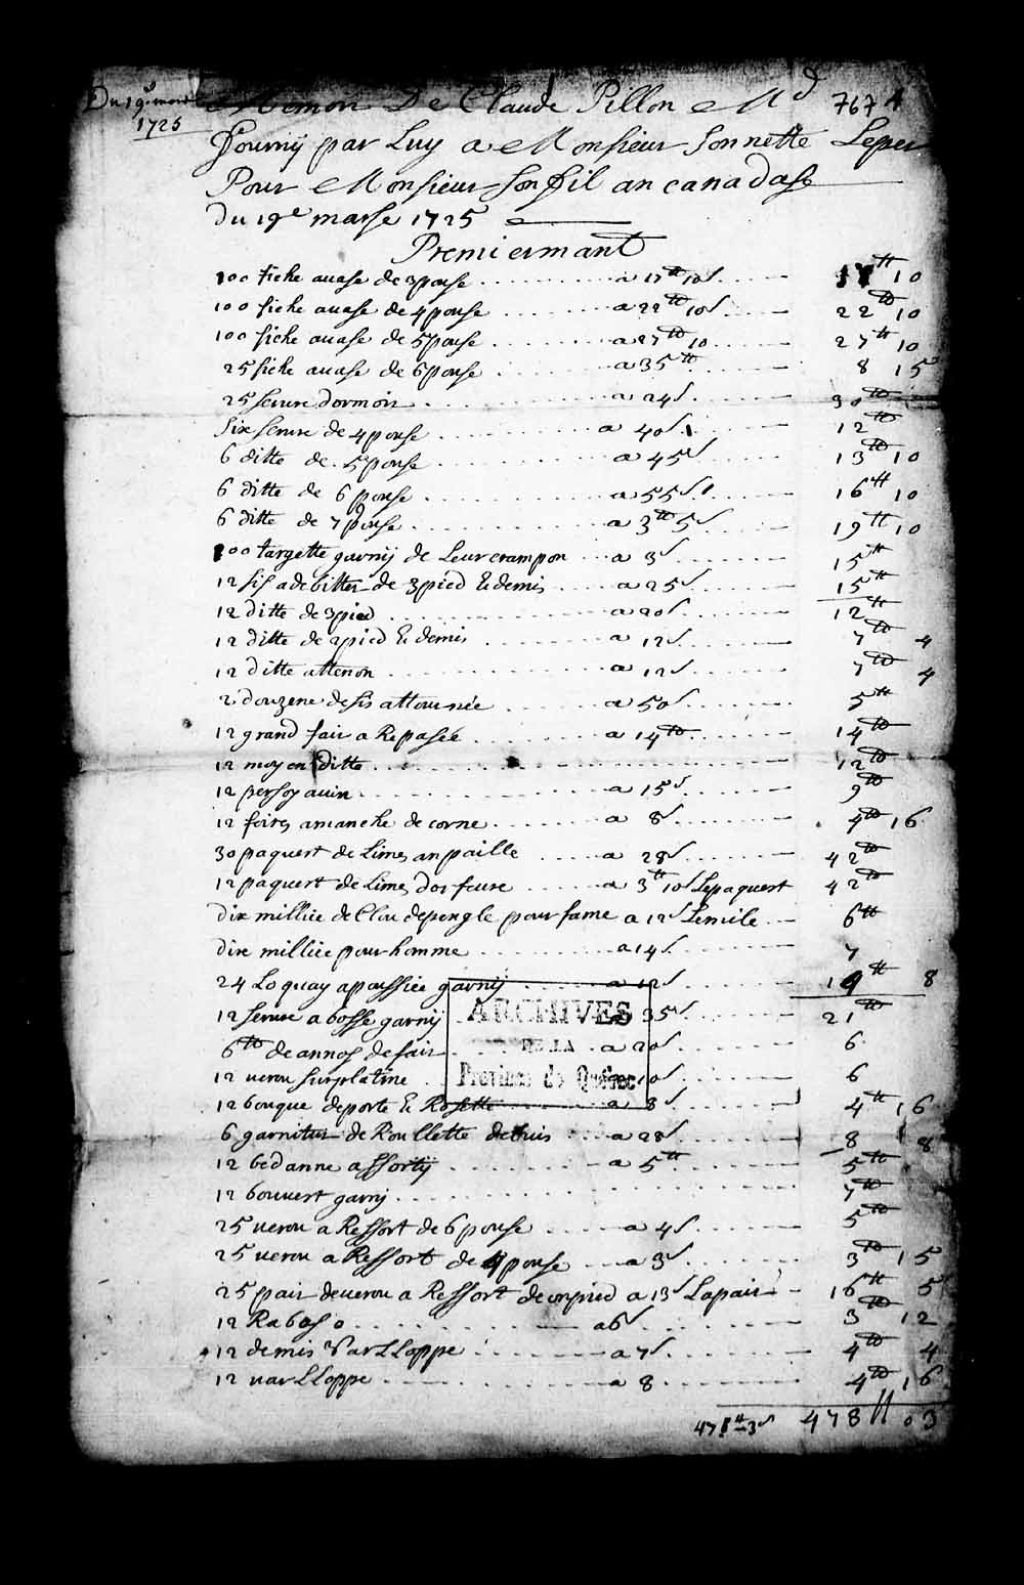 Du 19e mars
1725
Memoir De Claude Pillon Md 767 4
fourny par Luy a Monsieur Sonnette Leper
Pour Monsieur son fil an canadase
du 19e marse 1725
Premiermant
100 fiche auase de 3 pouse a 17tt 10s 17tt 10
100 fiche auase de 4 pouse a 22tt 10s 22tt 10
100 fiche auase de 5 pouse a 27tt 10 27tt 10
25 fiche auase de 6 pouse a 35tt 8 15
25 serure dormoir a 24s 30tt
six serure de 4 pouse a 40s 12tt
6 ditte de 5 pouse a 45s 13tt 10
6 ditte de 6 pouse a 55s 16tt 10
6 ditte de 7 pouse a 3tt 5s 19tt 10
100 targette garnij de Leur crampon a 3s 15tt
12 sis adebitter de 3 pied & demis a 25s 15tt
12 ditte de 3 pied a 20s 12tt
12 ditte de 2 pied & demis a 12s 7tt 4
12 ditte attenon a 12s 7tt 4
2 douzene de sis attournée a 50s 5tt
12 grand fair a Repasée a 14tt 14tt
12 moyen ditte 12tt
12 persoy auin a 15s 9tt
12 foires amanche de corne a 8s 4tt 16
30 paquert de Limes an paille a 28s 42tt
12 paquert de Limes dorfeure a 3tt 10s Lepaquert 42tt
dix milliée de Clou depengle pour fame a 12s Lemile 6tt
dix milliée pour homme a 14s 7
24 Loquay apoussiée garnij a 12s 14tt 8
12 serure a bosse garnij a 35s 21tt
6tt de annos de fair a 20s 6
12 uerou surplatine a 10s 6
12 bouque deporte & Rosette a 8s 4tt 16
6 garniture de Roullette de buis a 28s 8 8
12 bedanne assortij a 5tt 5tt
12 bouuert garnj 7tt
25 uerou a Ressort de 6 pouse a 4s 5tt
25 uerou a Ressort de 4 pouse a 3s 3tt 15
25 pair deuerou a Ressort deunpied a 13s Lapair 16tt 5
12 Raboso a 6s 3tt 12
12 demis varLLoppe a 7s 4tt 4
12 varLLoppe a 8 4tt 16
478tt 3s 478tt 03
ARCHIVES
DE LA
Province de Québec